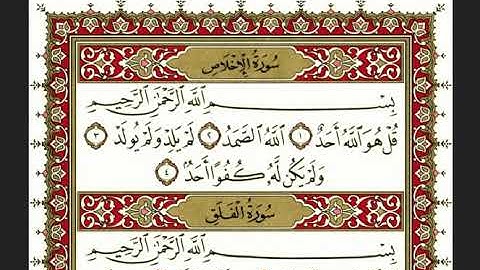 سُورَةُ الْإِخْلَاصِ
بِسْمِ اللَّهِ الرَّحْمَٰنِ الرَّحِيمِ
قُلْ هُوَ اللَّهُ أَحَدٌ ١ اللَّهُ الصَّمَدُ ٢ لَمْ يَلِدْ وَلَمْ يُولَدْ ٣
وَلَمْ يَكُن لَّهُ كُفُوًا أَحَدٌ ٤
سُورَةُ الْفَلَقِ
بِسْمِ اللَّهِ الرَّحْمَٰنِ الرَّحِيمِ